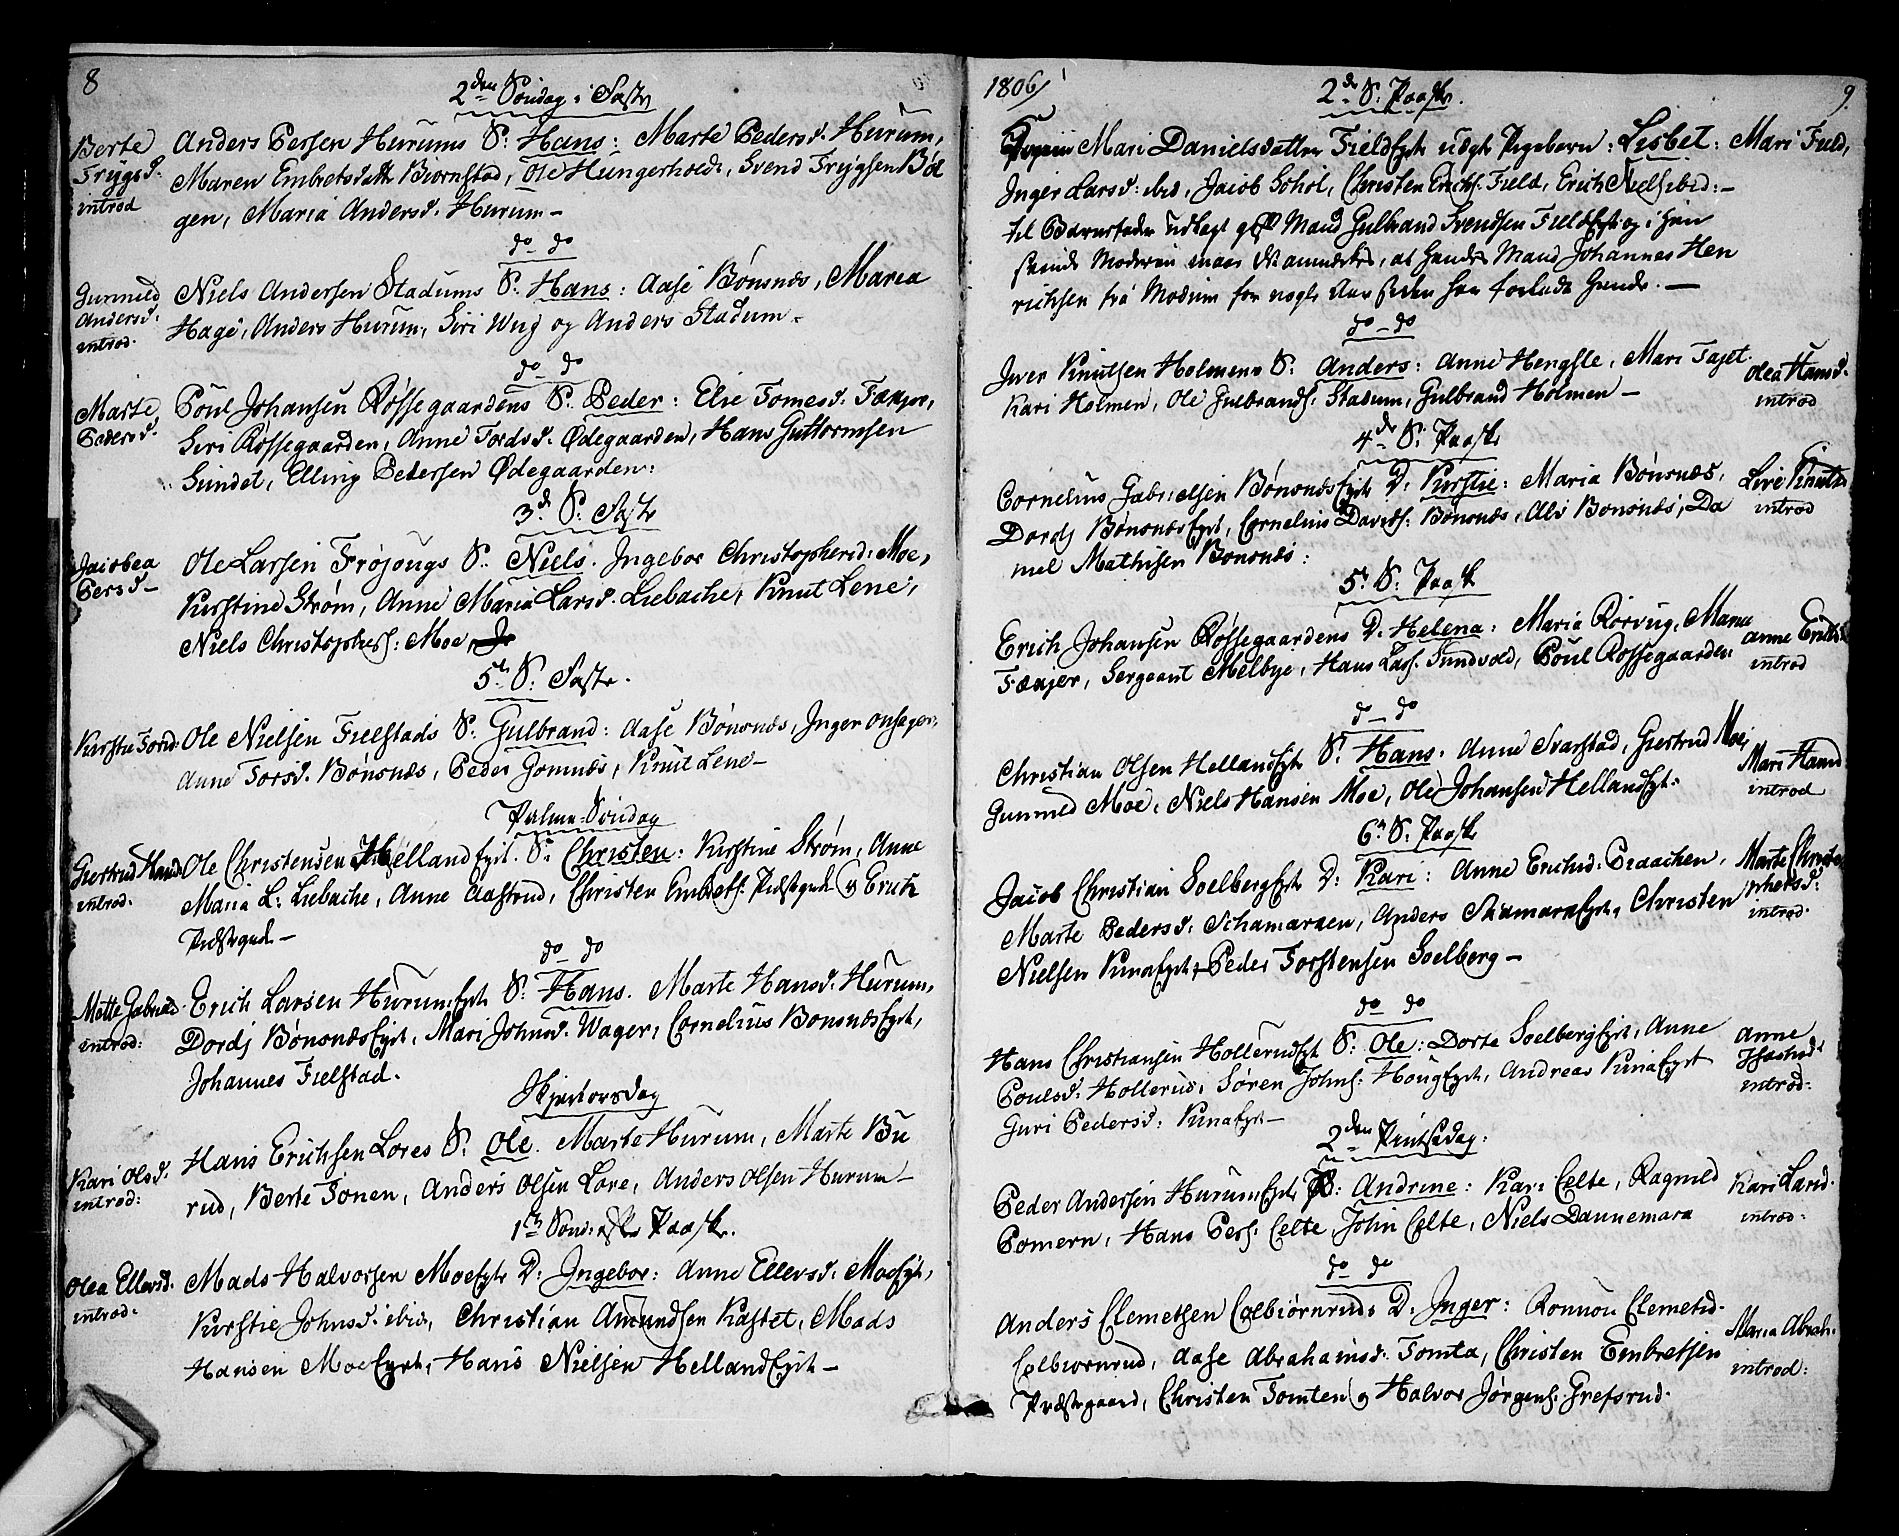 8
2den Søndag i Faste
Berte Trygsd. introd
Anders Perssen Hurums S: Hans: Marte Pedersd. Hurum,
Maren Embretsdatt Biørnstad, Ole Hungerhold, Svend Trygsen Bøl
gen, Maria Andersd. Hurum -
do - do
Gunnild Andersd. introd.
Niels Andersen Stadums S. Hans: Aase Bønsnæs, Maria
Hage, Anders Hurum, Siri Wug og Anders Stadum -
do - do
Marte Pedersd.
Poul Johansen Røssegaardens S. Peder: Elie Tomesd. Fæxjer,
Siri Røssegaarden, Anne Tordsd. Ødegaarden, Hans Guttormsen
Sundet, Elling Pedersen Ødegaarden:
3d. S: Faste
Jacobea Persd -
Ole Larsen Frøjougs S. Niels. Ingebor Christophersd: Moe,
Kirstine Strøm, Anne Maria Larsd. Liebache, Knut Lene,
Niels Christophers: Moe,
5. S. Faste.
Kirstie Tord:
Ole Nielsen Fielstads S. Gulbrand: Aase Bønsnæs, Inger Onsager,
Anne Torsd. Bønsnæs, Peder Gomnæs, Knut Lene -
Palme-Søndag
Giertrud Hansd introd.
Ole Christensen Helland Eyet. S. Christen: Kirstine Strøm, Anne
Maria L: Liebache, Anne Aastrud, Christen Embrets: Præstgaard og Erich
Præstegaard. -
do - do
Mette Gabrield. introd:
Erich Larsen Hurum Eyet S: Hans. Marte Hansd. Hurum,
Dordj Bønsnæs Eyet, Mari Johnsd. Wager, Cornelius Bonsnæs Eyet,
Johannes Fielstad.
Skjertorsdag
Kari Olsd. introd:
Hans Erichsen Lores S. Ole. Marte Hurum, Marte Bu
rud, Berte Tonen, Anders Olsen Lore, Anders Olsen Hurum -
1ste Sond: efter Paaske.
Olea Ellersd. introd:
Mads Halvorsen Moe Eyet D: Ingebor: Anne Ellersd. Moe Eyet,
Kirstie Johnsd. ibid, Christian Amundsen Kastet, Mads
Hansen Moe Eyet, Hans Nielsen Helland Eyet -
1806
9
2d. S. Paaske.
Mari Danielsdatter Field Eyet uægte Pigebarn: Lisbet: Mari Field,
Inger Larsd: ibid, Jacob Gohol, Christen Erichs. Field, Erich Niels ibid: -
til Barnefader Udlagt gift Mand Gulbrand Svendsen Field Eyet og i hen
seende Moderen maae det anmerkes, at hendes Mand Johannes Hen
richsen fra Modum for nogle Aar siden har forladt hende. -
do - do
Iver Knutsen Holmens S. Anders: Anne Hengsle, Mari Fajet
Kari Holmen, Ole Gulbrands. Stadum, Gulbrand Holmen -
Olea Hansd. introd
4de S: Paaske
Cornelius Gabrielsen Bønsnæs Eyet D. Kirstie: Maria Bønsnæs,
Dordj Bønsnæs Eyet, Cornelius Davids: Bønsnæs, Alv Bonsnæs, Da
niel Mathisen Bonsnæs:
Live Knuts introd
5. S: Paaske
Erich Johansen Røssegaardens D. Helena: Maria Rørvug, Marie
Fæxjer, Sergeant Melbye, Hans Lars. Sundvold, Poul Røssegaarden
Anne Erichsd introd
do - do
Christian Olsen Helland Eyet S. Hans: Anne Svarstad, Giertrud Moe,
Gunnild Moe, Niels Hansen Moe, Ole Johansen Helland Eyet.
Mari Hansd introd
6te S. Paaske
Jacob Christian Soelberg Eyet D: Kari: Anne Erichsd: Braachen,
Marte Pedersd. Schamaraen, Anders Skamara Eyet, Christen
Nielsen Kina Eyet, Peder Torstensen Soelberg -
Marte Christophersd: introd.
do do
Hans Christiansen Hollerud Eyet S: Ole: Dorte Soelberg Eyet, Anne
Poulsd. Hollerud, Søren Johns: Houg Eyet, Andreas Kina Eyet
Guri Pedersd: Kina Eyet -
Anne introd:
2den Pintsedag:
Peder Andersen Hurum Eyet D: Andrine: Kari Celte, Ragnild
Pomern, Hans Pers: Celte, John Celte, Niels Dannemara
Kari Larsd. introd:
do do
Anders Clemetsen Colbiørnruds D. Inger: Ronnou Clemetsd.
Colbiørnrud, Aase Abrahamsd. Tomta, Christen Embretsen
Præstegaard, Christen Tomten og Halvor Jørgens. Grefsrud.
Maria Abrah. introd: